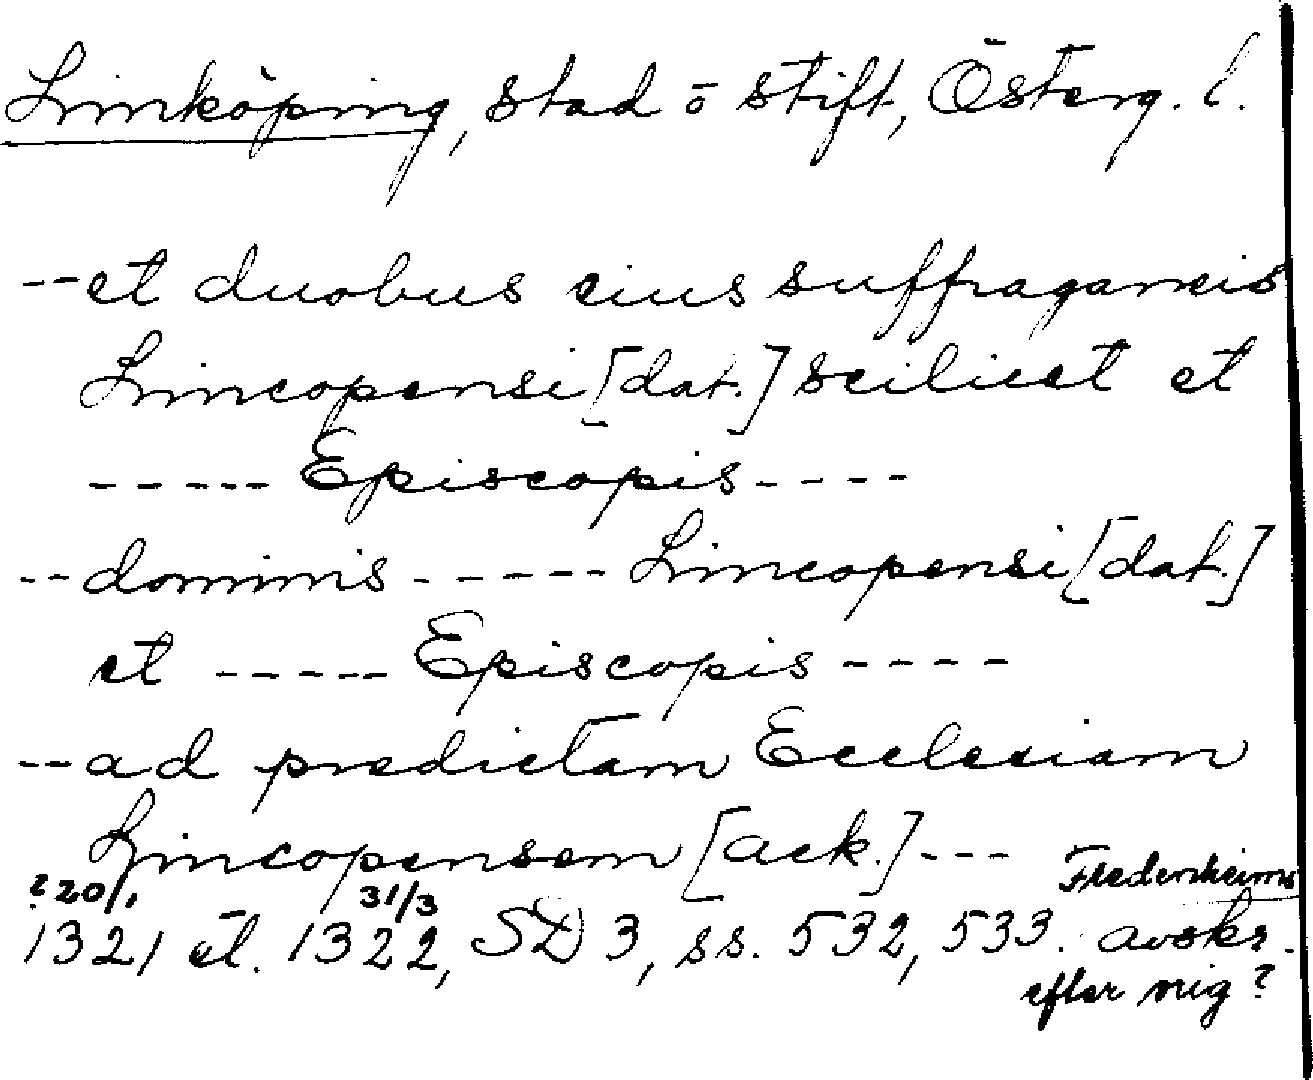 Linköping, stad o stift, Österg. l.
--et duobus eius suffraganeis
Lincopensi [dat.] scilicet et
----- Episcopis ----
--dominis ------ Lincopensi [dat.]
et ----- Episcopis ----
--ad predictam Ecclesiam
Lincopensem [ack.] ---
?20/1 31/3 Fredenheims
1321 el. 1322, SD 3, ss. 532, 533. avskr.
efter orig?